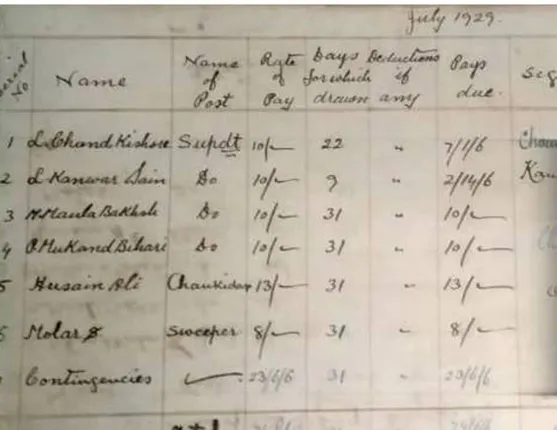 July 1929.
Serial No Name Name of Post Rate of Pay Days for which drawn Deductions if any Pays due.
1 L. Chand Kishore Supdt 10/- 22 " 7/1/6
2 L Kanwar Sain Do 10/- 9 " 2/14/6
3 M Maula Bakhsh Do 10/- 31 " 10/-
4 P. Mukand Bihari Do 10/- 31 " 10/-
5 Husain Ali Chaukidar 13/- 31 " 13/-
6 Molar Sweeper 8/- 31 " 8/-
Contingencies 23/6/6 31 " 23/6/6